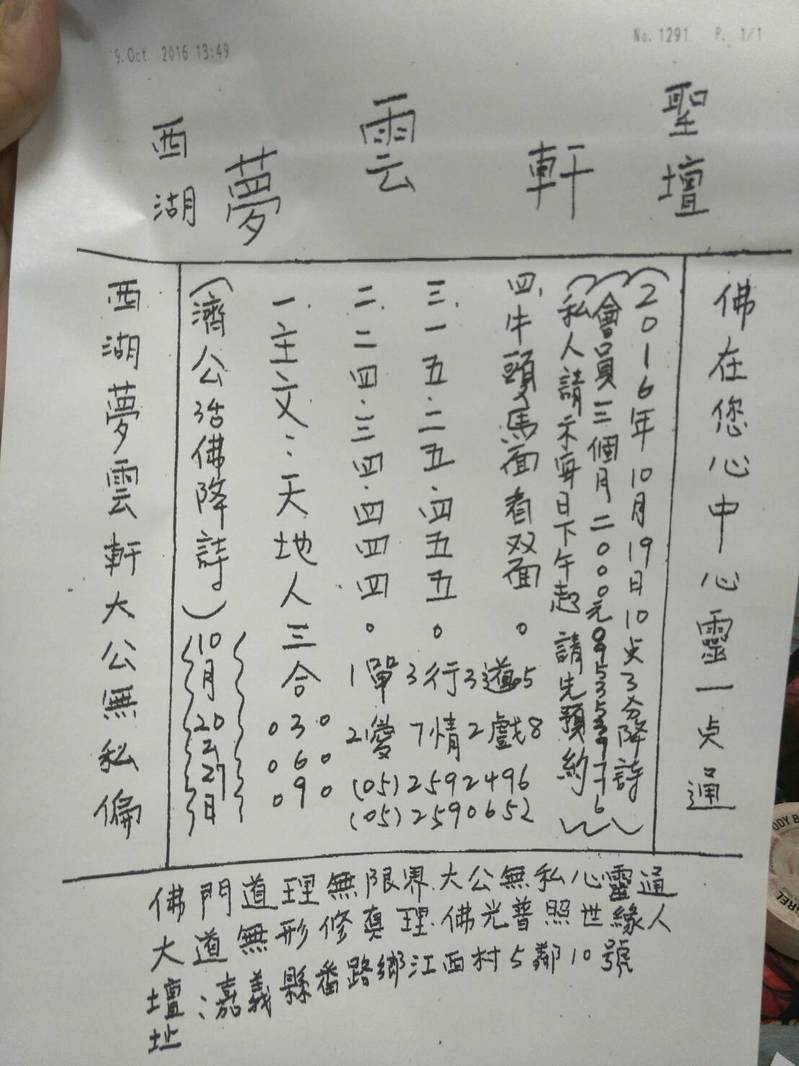 9.Oct 2016 13:49
No.1291 P. 1/1
西湖夢雲軒聖壇
佛在您心中心靈一点通
(2016年10月19日10点3分降詩)
(會員三個月二000元0953539776)
(私人請示每日下午起 請先預約)
四.牛頭馬面看双面。3道5
2戲8
三.一五.二五.四五五。3行
7情
二.二四.三四.四四四。1單
2愛
(05)2592496
(05)2590652
一.主文:天地人三合
030
060
090
(濟公活佛降詩)10月20至27日
西湖夢雲軒大公無私偏
佛門道理無限界.大公無私心靈通
大道無形修真理.佛光普照世緣人
壇址:嘉義縣番路鄉江西村5鄰10號